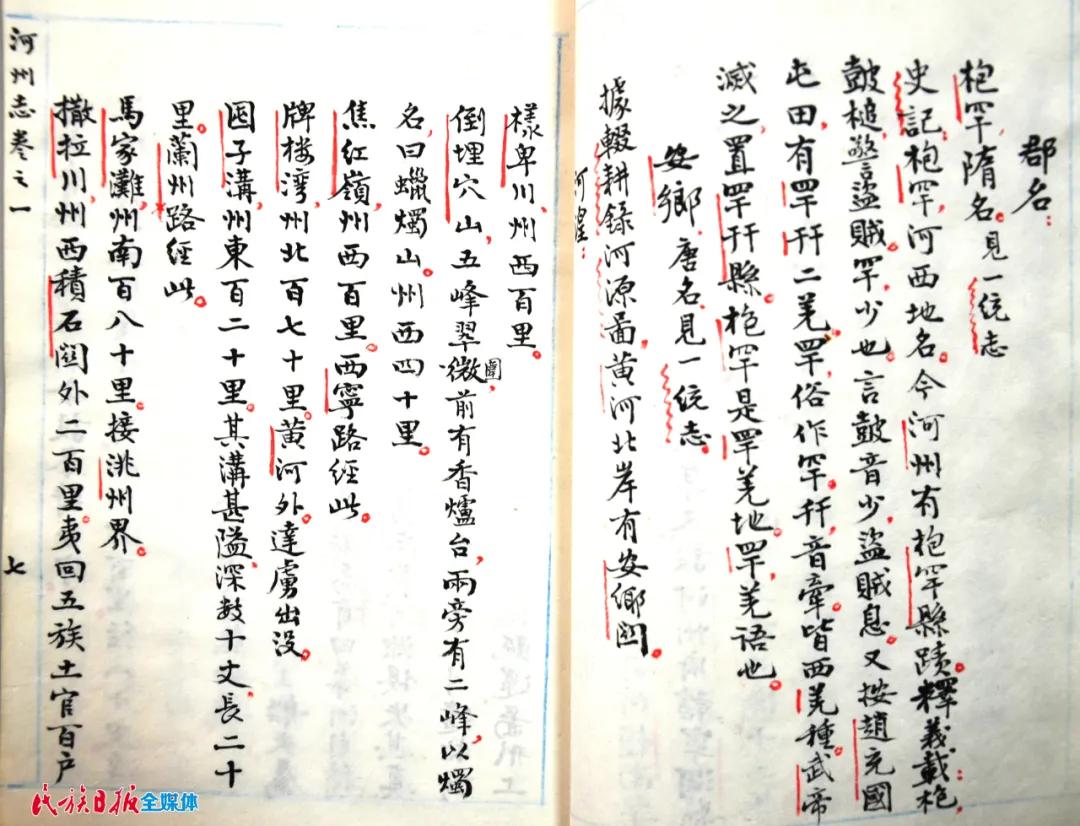 郡名：
枹罕，隋名。見一統志
史記：枹罕，河西地名。今河州有枹罕縣蹟。釋義載：枹，
皷槌，警盜賊。罕，少也。言皷音少，盜賊息。又按趙充國
屯田有罕幵二羌。罕，俗作罕。幵，音牽。皆西羌種。武帝
滅之置罕幵縣。枹罕是罕羌地。罕，羌語也。
安鄉，唐名，見一統志。
據輟耕錄河源啚，黄河北岸有安鄉関。
河湟：
樣卑川，州西百里。
倒埋穴山，五峰翠微圍，前有香爐台，兩旁有二峰，以燭
名，曰蠟燭山。州西四十里。
焦紅嶺，州西百里。西寧路經此。
牌楼湾，州北百七十里。黄河外，達虜出没。
子溝，州東百二十里。其溝甚隘，深数十丈，長二十
里。蘭州路經此。
馬家灘，州南百八十里，接洮州界。
撒拉川，州西積石関外二百里。夷回五族土官百户
河州志卷之一 七
民族日报全媒体